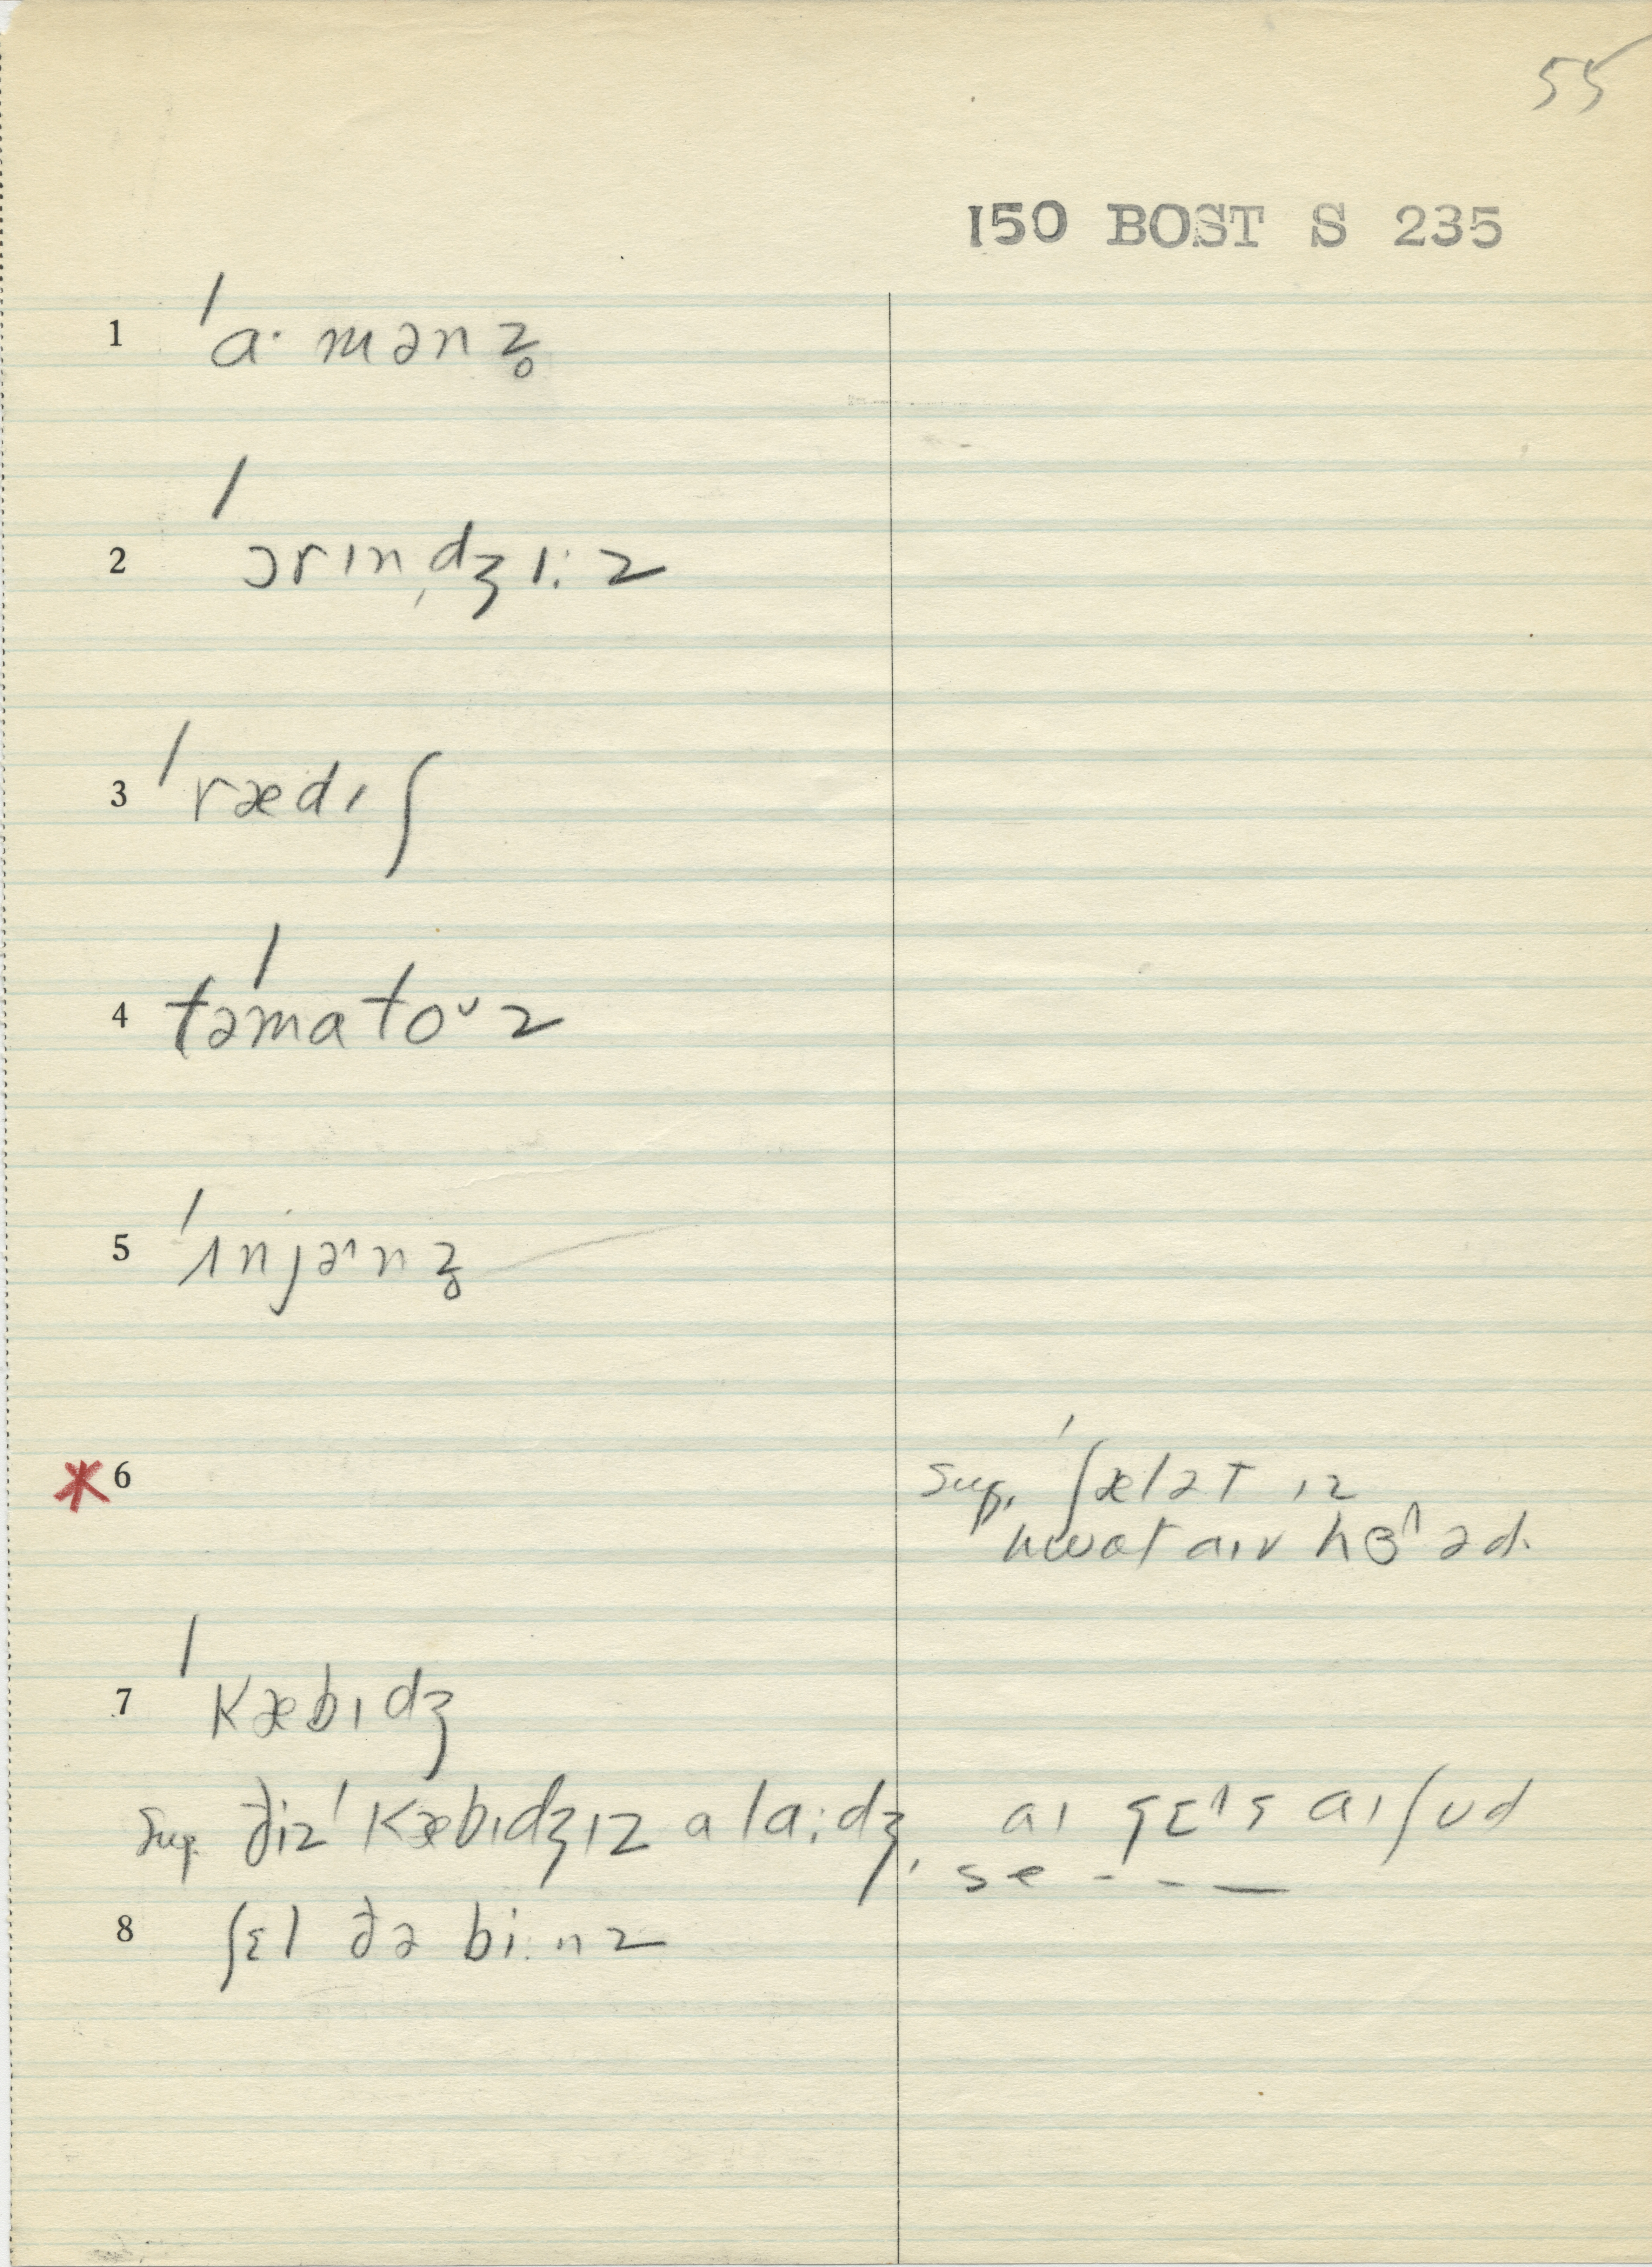 55
150 BOST S 235
1 ˈɑ·mənz̥
2 ˈɔrɪn̩dʒɪ:z
3 ˈrædɪʃ
4 təˈmatoᵛz
5 ˈɪnjə^nz̥
*6 Sug. ˈʃælət ɪz
hwɒt aɪv hɜ^əd.
7 ˈkæbɪdʒ
Sug. ðiz ˈkæbɪdʒɪz a la:dʒ, aɪ gɛ^s aɪ ʃʊd
se - - —
8 ʃɛl ðə bi:nz